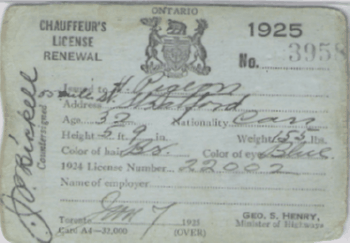 ONTARIO
CHAUFFEUR'S
LICENSE
RENEWAL
1925
No. 3958
Issued to H. Pigeon
Address Stratford
Age 32 Nationality Can
Height 5 ft. 9 in. Weight 155 lbs.
Color of hair Br. Color of eyes Blue
1924 License Number 22002
Name of employer
Toronto Jan 7 1925
Card A4—32,000 (OVER)
GEO. S. HENRY,
Minister of Highways
Countersigned
J. P. Bickell